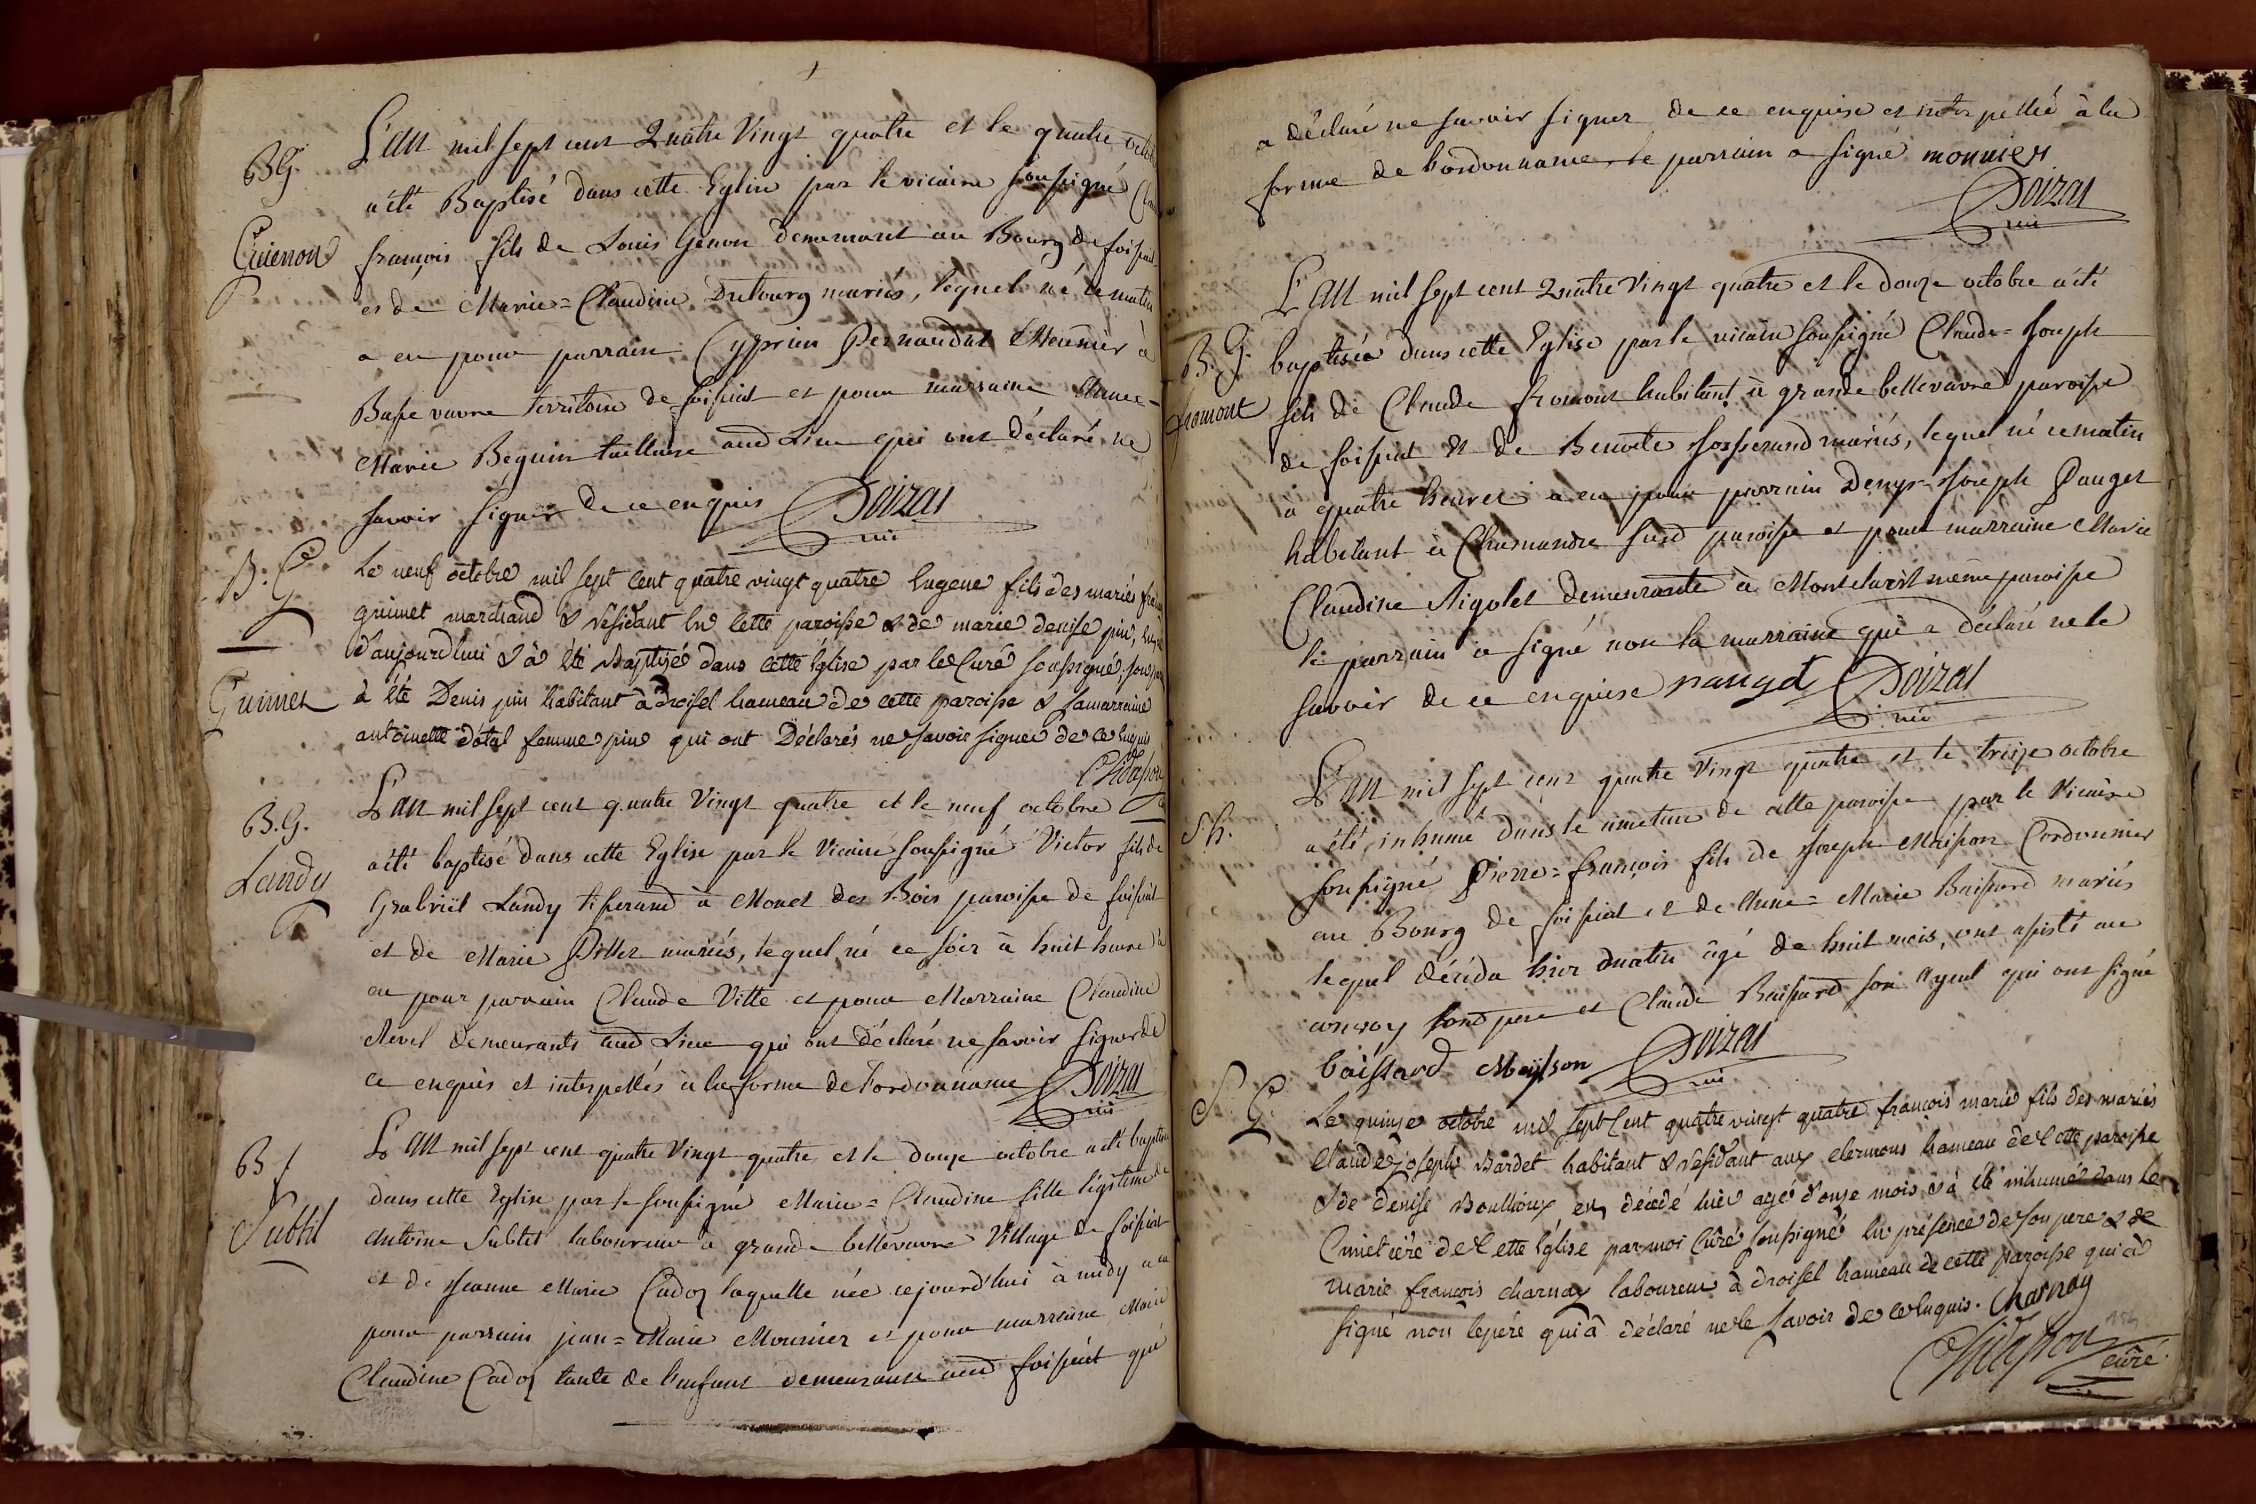 BG.
Guienon
L'an mil sept cent Quatre Vingt quatre et le quatre octob
a été Baptisé dans cette Eglise par le vicaire soussigné
françois fils de Louis Genon demeurant au Bourg de foissiat
et de Marie=Claudine Dubourg mariés, lequel né ce matin
a eu pour parrain Cyprien Pernaudat Meunier à
Basse vavre territoire de foissiat et pour marraine Anne-
Marie Beguin tailleuse aud Lieu qui ont déclaré ne
savoir signer de ce enquis Doizat
vic
B. G.
Guimet
Le neuf octobre mil sept cent quatre vingt quatre Eugene fils des mariés
guimet marchand & résidant en cette paroisse & de marie denise pin,
d'aujourdhui & à été Baptisé dans cette Eglise par le Curé soussigné,
à été Denis pin habitant à droisel hameau de cette paroisse & sa marraine
antoinette dotal femme pin qui ont Déclarés ne savoir signer de ce enquis
Chidasson
B.G.
Landy
L'an mil sept cent quatre Vingt quatre et le neuf octobre
a été baptisé dans cette Eglise par le Vicaire soussigné Victor fils de
Gabriël Landy tisserand à Monet des Bois paroisse de foissiat
et de Marie Pillet mariés, lequel né ce soir à huit heure à
eu pour parrain Claude Vitte et pour Marraine Claudine
Revel demeurants aud Lieu qui ont déclaré ne savoir signer de
ce enquis et interpellés à la forme de l'ordonnance Doizat
vic
B f
Subtil
L'an mil sept cent quatre Vingt quatre et le douze octobre a été baptisée
dans cette Eglise par le soussigné Marie=Claudine fille légitime de
Antoine Subtil laboureur à grande bellevavre Village de foissiat
et de Jeanne Marie Cadoz laquelle née cejourd'hui à midy a eu
pour parrain jean=Marie Mounier et pour marraine Marie
Claudine Cadoz tante de l'enfant demeurante aud foissiat qui
a déclaré ne savoir signer de ce enquise et interpellée à la
forme de l'ordonnance, le parrain a signé monnier
Doizat
vic
B. G.
fromont
L'an mil sept cent Quatre Vingt quatre et le douze octobre a été
baptisée dans cette Eglise par le vicaire soussigné Claude=Joseph
fils de Claude fromont habitant à grande bellevavre paroisse
de foissiat et de Benoite Josserand mariés, lequel né ce matin
à quatre heures a eu pour parrain Denys-Joseph Pauget
habitant à Chamandre susd paroisse et pour marraine Marie
Claudine Rigolet demeurante à Monclairet même paroisse
le parrain a signé non la marraine qui a déclaré ne le
savoir de ce enquise pauget Doizat
vic
S. h.
L'an mil sept cent quatre Vingt quatre et le treize octobre
a été inhumé dans le cimetiere de cette paroisse par le Vicaire
soussigné Pierre=françois fils de Joseph Maisson Cordonnier
au Bourg de foissiat et de Anne=Marie Baissard mariés
lequel décéda hier matin âgé de huit mois, ont assisté au
convoy sond pere et Claude Baissard son Ayeul qui ont signé
baissard Maisson Doizat
vic
S. G.
Le quinze octobre mil sept cent quatre vingt quatre françois marie fils des mariés
Claude joseph Bardet habitant & résidant aux clermons hameau de cette paroisse
& de denise Boullioux est décédé hier agé d'onze mois & à été inhumé dans le
Cimetiére de cette Eglise par moi Curé soussigné en présence de son pere & de
marie françois charnay laboureur à droisel hameau de cette paroisse qui à
signé non le père qui à déclaré ne le savoir de ce enquis. Charnay
Chidasson
curé